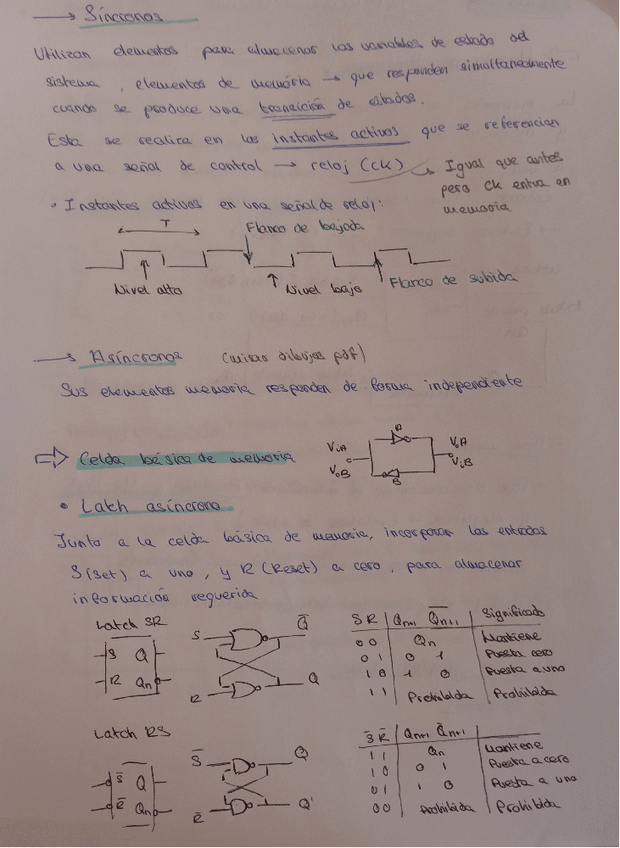 → Síncronos
Utilizan elementos para almacenar las variables de estado del
sistema, elementos de memória → que responden simultaneamente
cuando se produce una transición de estados.
Esta se realiza en los instantes activos que se referencian
a una señal de control → reloj (CK)
Igual que antes
pero CK entra en
memoria
• Instantes activos en una señal de reloj:
T
Flanco de bajada
Nivel alto
Nivel bajo
Flanco de subida
→ Asíncronos (mirar dibujos pdf)
Sus elementos memoria responden de forma independiente
⇒ Celda básica de memoria
A
ViA
VoB
VoA
ViB
B
• Latch asíncrono
Junto a la celda básica de memoria, incorporan las entradas
S(Set) a uno, y R (Reset) a cero, para almacenar
información requerida
Latch SR
S Q
R Qn
S
R
Q̅
Q
S R Qn+1 Q̅n+1 Significado
0 0 Qn Mantiene
0 1 0 1 Puesta cero
1 0 1 0 Puesta a uno
1 1 Prohibida Prohibida
Latch RS
S̅ Q
R̅ Qn
S̅
R̅
Q
Q'
S̅ R̅ Qn+1 Q̅n+1
1 1 Qn Mantiene
1 0 0 1 Puesta a cero
0 1 1 0 Puesta a uno
0 0 Prohibida Prohibida